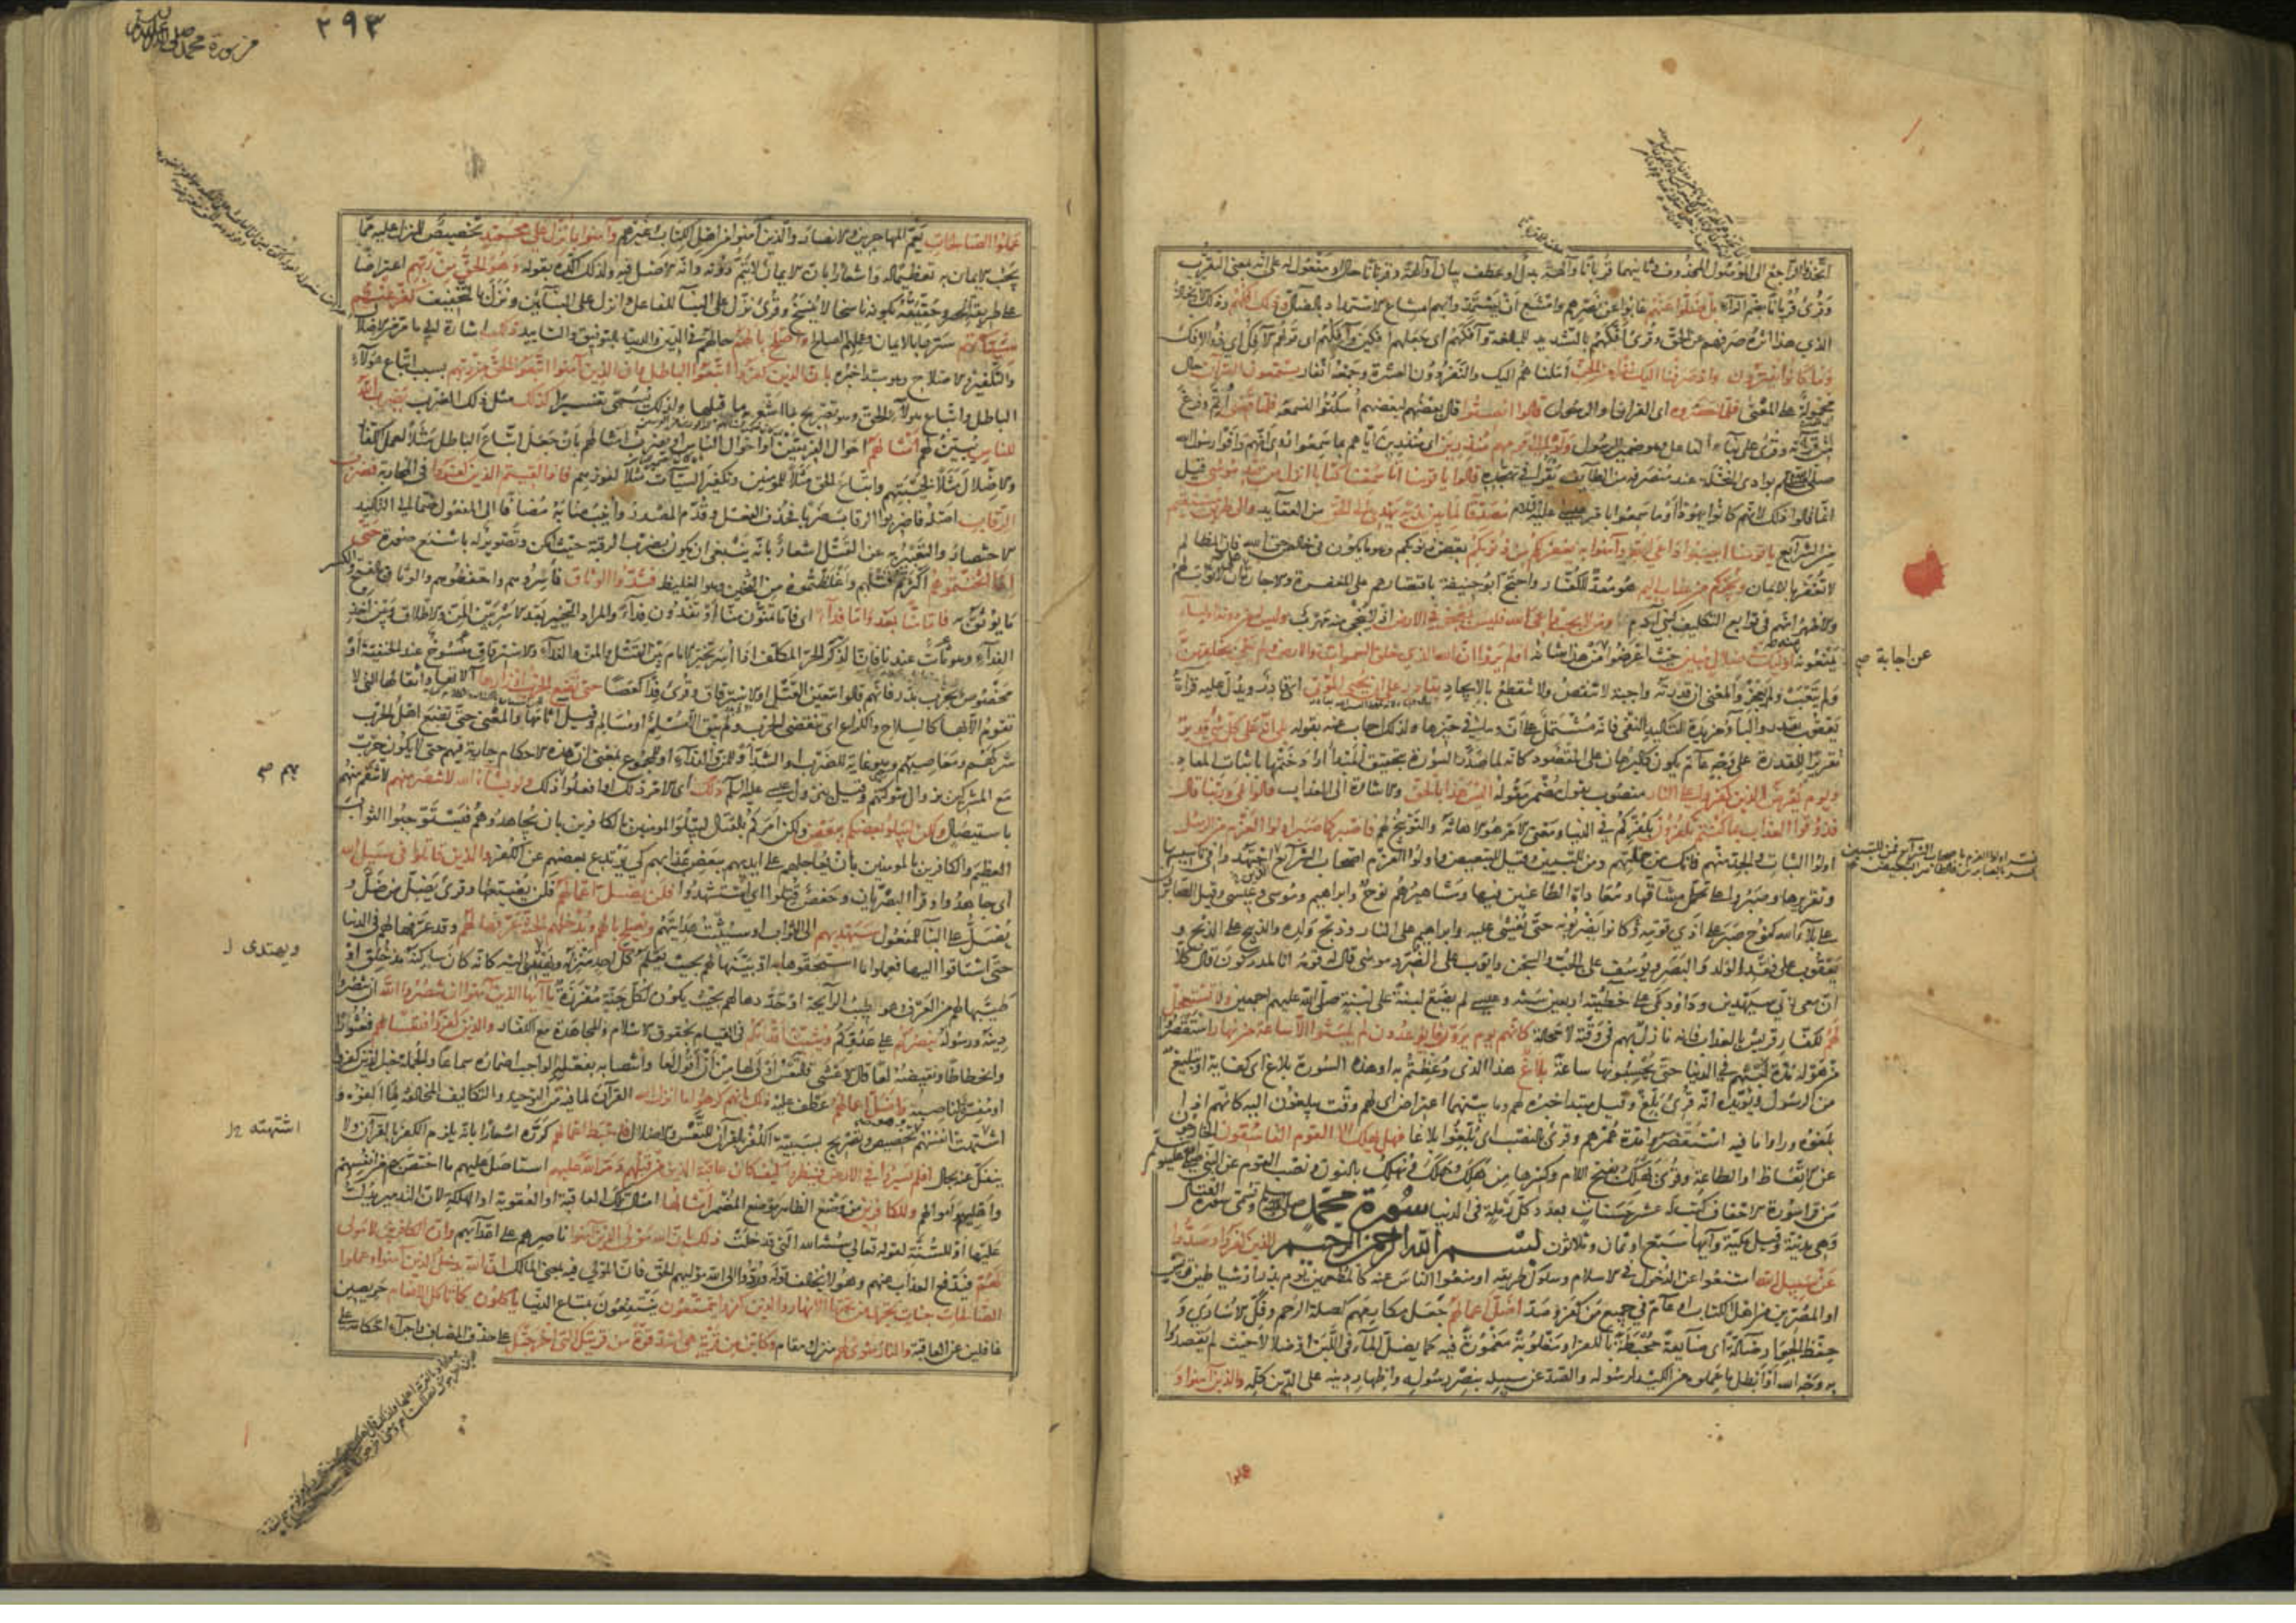 اتخذوا الراجع الى الموصول المحذوف وثانيهما قربانا وآلهة بدل او عطف بيان او آلهة وقربانا حال او مفعول له على انه بمعنى التقرب
وقرئ قربانا بضم الراء بل ضلوا عنهم غابوا عن نصرهم وامتنع ان يستمدوا بهم امتناع الاستمداد بالضال وذلك افكهم وذلك الاتخاذ
الذي هذا اثره صرفهم عن الحق وقرئ افكهم بالتشديد للمبالغة وآفكهم اي جعلهم آفكين وآفكهم اي قولهم الآفك اي ذو الافك
وما كانوا يفترون واذ صرفنا اليك نفرا من الجن املناهم اليك والنفر دون العشرة وجمعه انفار يستمعون القرآن حال
محمولة على المعنى فلما حضروه اي القرآن او الرسول قالوا انصتوا قال بعضهم لبعض اسكتوا لنسمعه فلما قضى اتم وفرغ
من قراءته وقرئ على بناء الفاعل وهو ضمير الرسول ولوا الى قومهم منذرين اي منذرين اياهم بما سمعوا روي انهم وافوا رسول الله
صلى الله عليه وسلم بوادي النخلة عند منصرفه من الطائف يقرأ في تهجده قالوا يا قومنا انا سمعنا كتابا انزل من بعد موسى قيل
انما قالوا ذلك لانهم كانوا يهودا او ما سمعوا بامر عيسى عليه السلام مصدقا لما بين يديه يهدي الى الحق من العقائد والى طريق مستقيم
من الشرائع يا قومنا اجيبوا داعي الله وآمنوا به يغفر لكم من ذنوبكم بعض ذنوبكم وهو ما يكون في خالص حق الله فان المظالم
لا تغفر بالايمان ويجركم من عذاب اليم هو معد للكفار واحتج ابو حنيفة باقتصارهم على المغفرة والاجارة على ان لا ثواب لهم
والاظهر انهم في توابع التكليف كبني آدم ومن لا يجب داعي الله فليس بمعجز في الارض اذ لا ينجي منه مهرب وليس له من دونه اولياء
يمنعونه اولئك في ضلال مبين حيث اعرضوا عن هذا شأنه اولم يروا ان الله الذي خلق السموات والارض ولم يعي بخلقهن
ولم يتعب ولم يعجز والمعنى ان قدرته واجبة لا تنقص ولا تنقطع بالايجاد بقادر على ان يحيي الموتى اي قادر ويدل عليه قراءة
يعقوب يقدر والباء مزيدة لتأكيد النفي فانه مشتمل على ان وما في حيزها ولذلك اجاب عنه بقوله بلى انه على كل شيء قدير
تقريرا للقدرة على وجه عام يكون كالبرهان على المقصود كانه لما صدر السورة بتحقيق المبدأ اراد ختمها باثبات المعاد
ويوم يعرض الذين كفروا على النار منصوب بقول مضمر مقوله اليس هذا بالحق والاشارة الى العذاب قالوا بلى وربنا قال
فذوقوا العذاب بما كنتم تكفرون بكفركم في الدنيا ومعنى الامر هو الاهانة والتوبيخ لهم فاصبر كما صبر اولوا العزم من الرسل
اولوا الثبات والجد منهم فانك من جملتهم ومن للتبيين وقيل للتبعيض واولوا العزم اصحاب الشرائع اجتهدوا في تأسيسها
وتقريرها وصبروا على تحمل مشاقها ومعاداة الطاعنين فيها ومشاهيرهم نوح وابراهيم وموسى وعيسى وقيل الصابرون
على بلاء الله كنوح صبر على اذى قومه كانوا يضربونه حتى يغشى عليه وابراهيم على النار وذبح ولده والذبيح على الذبح و
يعقوب على فقد الولد والبصر ويوسف على الجب والسجن وايوب على الضر وموسى قال له قومه انا لمدركون قال كلا
ان معي ربي سيهدين وداود بكى على خطيئته اربعين سنة وعيسى لم يضع لبنة على لبنة صلى الله عليهم اجمعين ولا تستعجل
لهم لكفار قريش بالعذاب فانه نازل بهم في وقته لا محالة كانهم يوم يرون ما يوعدون لم يلبثوا الا ساعة من نهار استقصروا
من هوله مدة لبثهم في الدنيا حتى يحسبونها ساعة بلاغ هذا الذي وعظتم به او هذه السورة بلاغ اي كفاية او تبليغ
من الرسول ويؤيده انه قرئ بلغ وقيل مبتدأ خبره لهم وما بينهما اعتراض اي لهم وقت يبلغون اليه كانهم اذا
بلغوه ورأوا ما فيه استقصروا مدة عمرهم وقرئ بالنصب اي بلغوا بلاغا فهل يهلك الا القوم الفاسقون الخارجون
عن الاتعاظ او الطاعة وقرئ يهلك بفتح اللام وكسرها من هلك وهلك ونهلك بالنون ونصب القوم عن النبي صلى الله عليه وسلم
من قرأ سورة الاحقاف كتب له عشر حسنات بعدد كل رملة في الدنيا سورة محمد صلى الله عليه وسلم وتسمى سورة القتال
وهي مدنية وقيل مكية وآيها سبع او ثمان وثلاثون بسم الله الرحمن الرحيم الذين كفروا وصدوا
عن سبيل الله امتنعوا عن الدخول في الاسلام وسلوك طريقه او منعوا الناس عنه كالمطعمين يوم بدر او شياطين قريش
او المصرين من اهل الكتاب او عام في جميع من كفر وصد اضل اعمالهم جعل مكارمهم كصلة الرحم وفك الاسارى و
حفظ الجوار ضالة اي ضائعة محبطة بالكفر او مغلوبة مغمورة فيه كما يضل الماء في اللبن او ضلالا حيث لم يقصدوا
به وجه الله او ابطل ما عملوه من الكيد لرسوله والصد عن سبيله بنصر رسوله واظهار دينه على الدين كله والذين آمنوا و
عن اجابة صح
عملوا
٢٩٣
من سورة محمد صلى الله عليه وسلم
عملوا الصالحات يعم المهاجرين والانصار والذين آمنوا من اهل الكتاب وغيرهم وآمنوا بما نزل على محمد تخصيص للمنزل عليه مما
يجب الايمان به تعظيما له واشعارا بان الايمان لا يتم دونه وانه الاصل فيه ولذلك اكده بقوله وهو الحق من ربهم اعتراضا
على طريقة الحصر وحقيته بكونه ناسخا لا ينسخ وقرئ نزل على البناء للفاعل وانزل على البنائين ونزل بالتخفيف كفر عنهم
سيئاتهم سترها بالايمان وعملهم الصالح واصلح بالهم حالهم في الدين والدنيا بالتوفيق والتأييد ذلك اشارة الى ما مر من الاضلال
والتكفير والاصلاح وهو مبتدأ خبره بان الذين كفروا اتبعوا الباطل وان الذين آمنوا اتبعوا الحق من ربهم بسبب اتباع هؤلاء
الباطل واتباع هؤلاء الحق وهو تصريح بما اشعر به ما قبلها ولذلك يسمى تفسيرا كذلك مثل ذلك الضرب يضرب الله
للناس يبين لهم امثالهم احوال الفريقين او احوال الناس او يضرب امثالهم بان جعل اتباع الباطل مثلا لعمل الكفار
والاضلال مثلا لخيبتهم واتباع الحق مثلا للمؤمنين وتكفير السيئات مثلا لفوزهم فاذا لقيتم الذين كفروا في المحاربة فضرب
الرقاب اصله فاضربوا الرقاب ضربا فحذف الفعل وقدم المصدر وانيب منابه مضافا الى المفعول ضما الى التأكيد
الاختصار والتعبير به عن القتل اشعار بانه ينبغي ان يكون بضرب الرقبة حيث امكن وتصوير له باشنع صورة حتى
اذا اثخنتموهم اكثرتم قتلهم واغلظتموه من الثخين وهو الغليظ فشدوا الوثاق فأسروهم واحفظوهم والوثاق بالفتح والكسر
ما يوثق به فاما منا بعد واما فداء اي فاما تمنون منا او تفدون فداء والمراد التخيير بعد الاسر بين المن والاطلاق وبين اخذ
الفداء وهو ثابت عندنا فان الذكر الحر المكلف اذا اسر تخير الامام بين القتل والمن والفداء والاسترقاق منسوخ عند الحنفية او
مخصوص بحرب بدر فانهم قالوا بتعين القتل او الاسترقاق وقرئ فدا كعصا حتى تضع الحرب اوزارها آلاتها واثقالها التي لا
تقوم الا بها كالسلاح والكراع اي تنقضي الحرب ولم يبق الا مسلم او مسالم وقيل آثامها والمعنى حتى يضع اهل الحرب
شركهم ومعاصيهم وهو غاية للضرب او الشد او للمن والفداء او للمجموع بمعنى ان هذه الاحكام جارية فيهم حتى لا يكون حرب
مع المشركين بزوال شوكتهم وقيل بنزول عيسى عليه السلام ذلك اي الامر ذلك او افعلوا ذلك ولو يشاء الله لانتصر منهم لانتقم منهم
باستيصال ولكن ليبلو بعضكم ببعض ولكن امركم بالقتال ليبلو المؤمنين بالكافرين بان يجاهدوهم فيستوجبوا الثواب
العظيم والكافرين بالمؤمنين بان يعاجلهم على ايديهم ببعض عذابهم كي يرتدع بعضهم عن الكفر والذين قاتلوا في سبيل الله
اي جاهدوا وقرأ البصريان وحفص قتلوا اي استشهدوا فلن يضل اعمالهم فلن يضيعها وقرئ يضل من ضل و
يضل على البناء للمفعول سيهديهم الى الثواب او سيثبت هدايتهم ويصلح بالهم ويدخلهم الجنة عرفها لهم وقد عرفها لهم في الدنيا
حتى اشتاقوا اليها فعملوا ما استحقوها به او بينها لهم بحيث يعلم كل احد منزله ويهتدي اليه كانه كان ساكنه منذ خلق او
طيبها لهم من العرف وهو طيب الرائحة او حددها لهم بحيث يكون لكل جنة مفرزة يا ايها الذين آمنوا ان تنصروا الله ان تنصروا
دينه ورسوله ينصركم على عدوكم ويثبت اقدامكم في القيام بحقوق الاسلام والمجاهدة مع الكفار والذين كفروا فتعسا لهم فعثورا
وانحطاطا ونقيضه لعا قال الاعشى فالتعس اولى لها من ان اقول لعا وانتصابه بفعله الواجب اضماره سماعا والجملة خبر الذين كفروا
او مفسرة لناصبه واضل اعمالهم عطف عليه ذلك بانهم كرهوا ما انزل الله القرآن لما فيه من التوحيد والتكاليف المخالفة لما الفوه و
اشتهت انفسهم وهو تخصيص وتصريح بسببية الكفر بالقرآن للتعس والاضلال فاحبط اعمالهم كرره اشعارا بانه يلزم الكفر بالقرآن ولا
ينفك عنه بحال افلم يسيروا في الارض فينظروا كيف كان عاقبة الذين من قبلهم دمر الله عليهم استأصل عليهم ما اختص بهم من انفسهم
واهليهم واموالهم وللكافرين من وضع الظاهر موضع المضمر امثالها امثال تلك العاقبة او العقوبة او الهلكة لان التدمير يدل
عليها او للسنة لقوله تعالى سنة الله التي قد خلت ذلك بان الله مولى الذين آمنوا ناصرهم على اعدائهم وان الكافرين لا مولى
لهم فيدفع العذاب عنهم وهو لا يخالف قوله وردوا الى الله موليهم الحق فان المولى فيه بمعنى المالك ان الله يدخل الذين آمنوا وعملوا
الصالحات جنات تجري من تحتها الانهار والذين كفروا يتمتعون ينتفعون بمتاع الدنيا ويأكلون كما تأكل الانعام حريصين
غافلين عن العاقبة والنار مثوى لهم منزل ومقام وكاين من قرية هي اشد قوة من قريتك التي اخرجتك على حذف المضاف واجراء احكامه على
ويهتدى
اشتهته